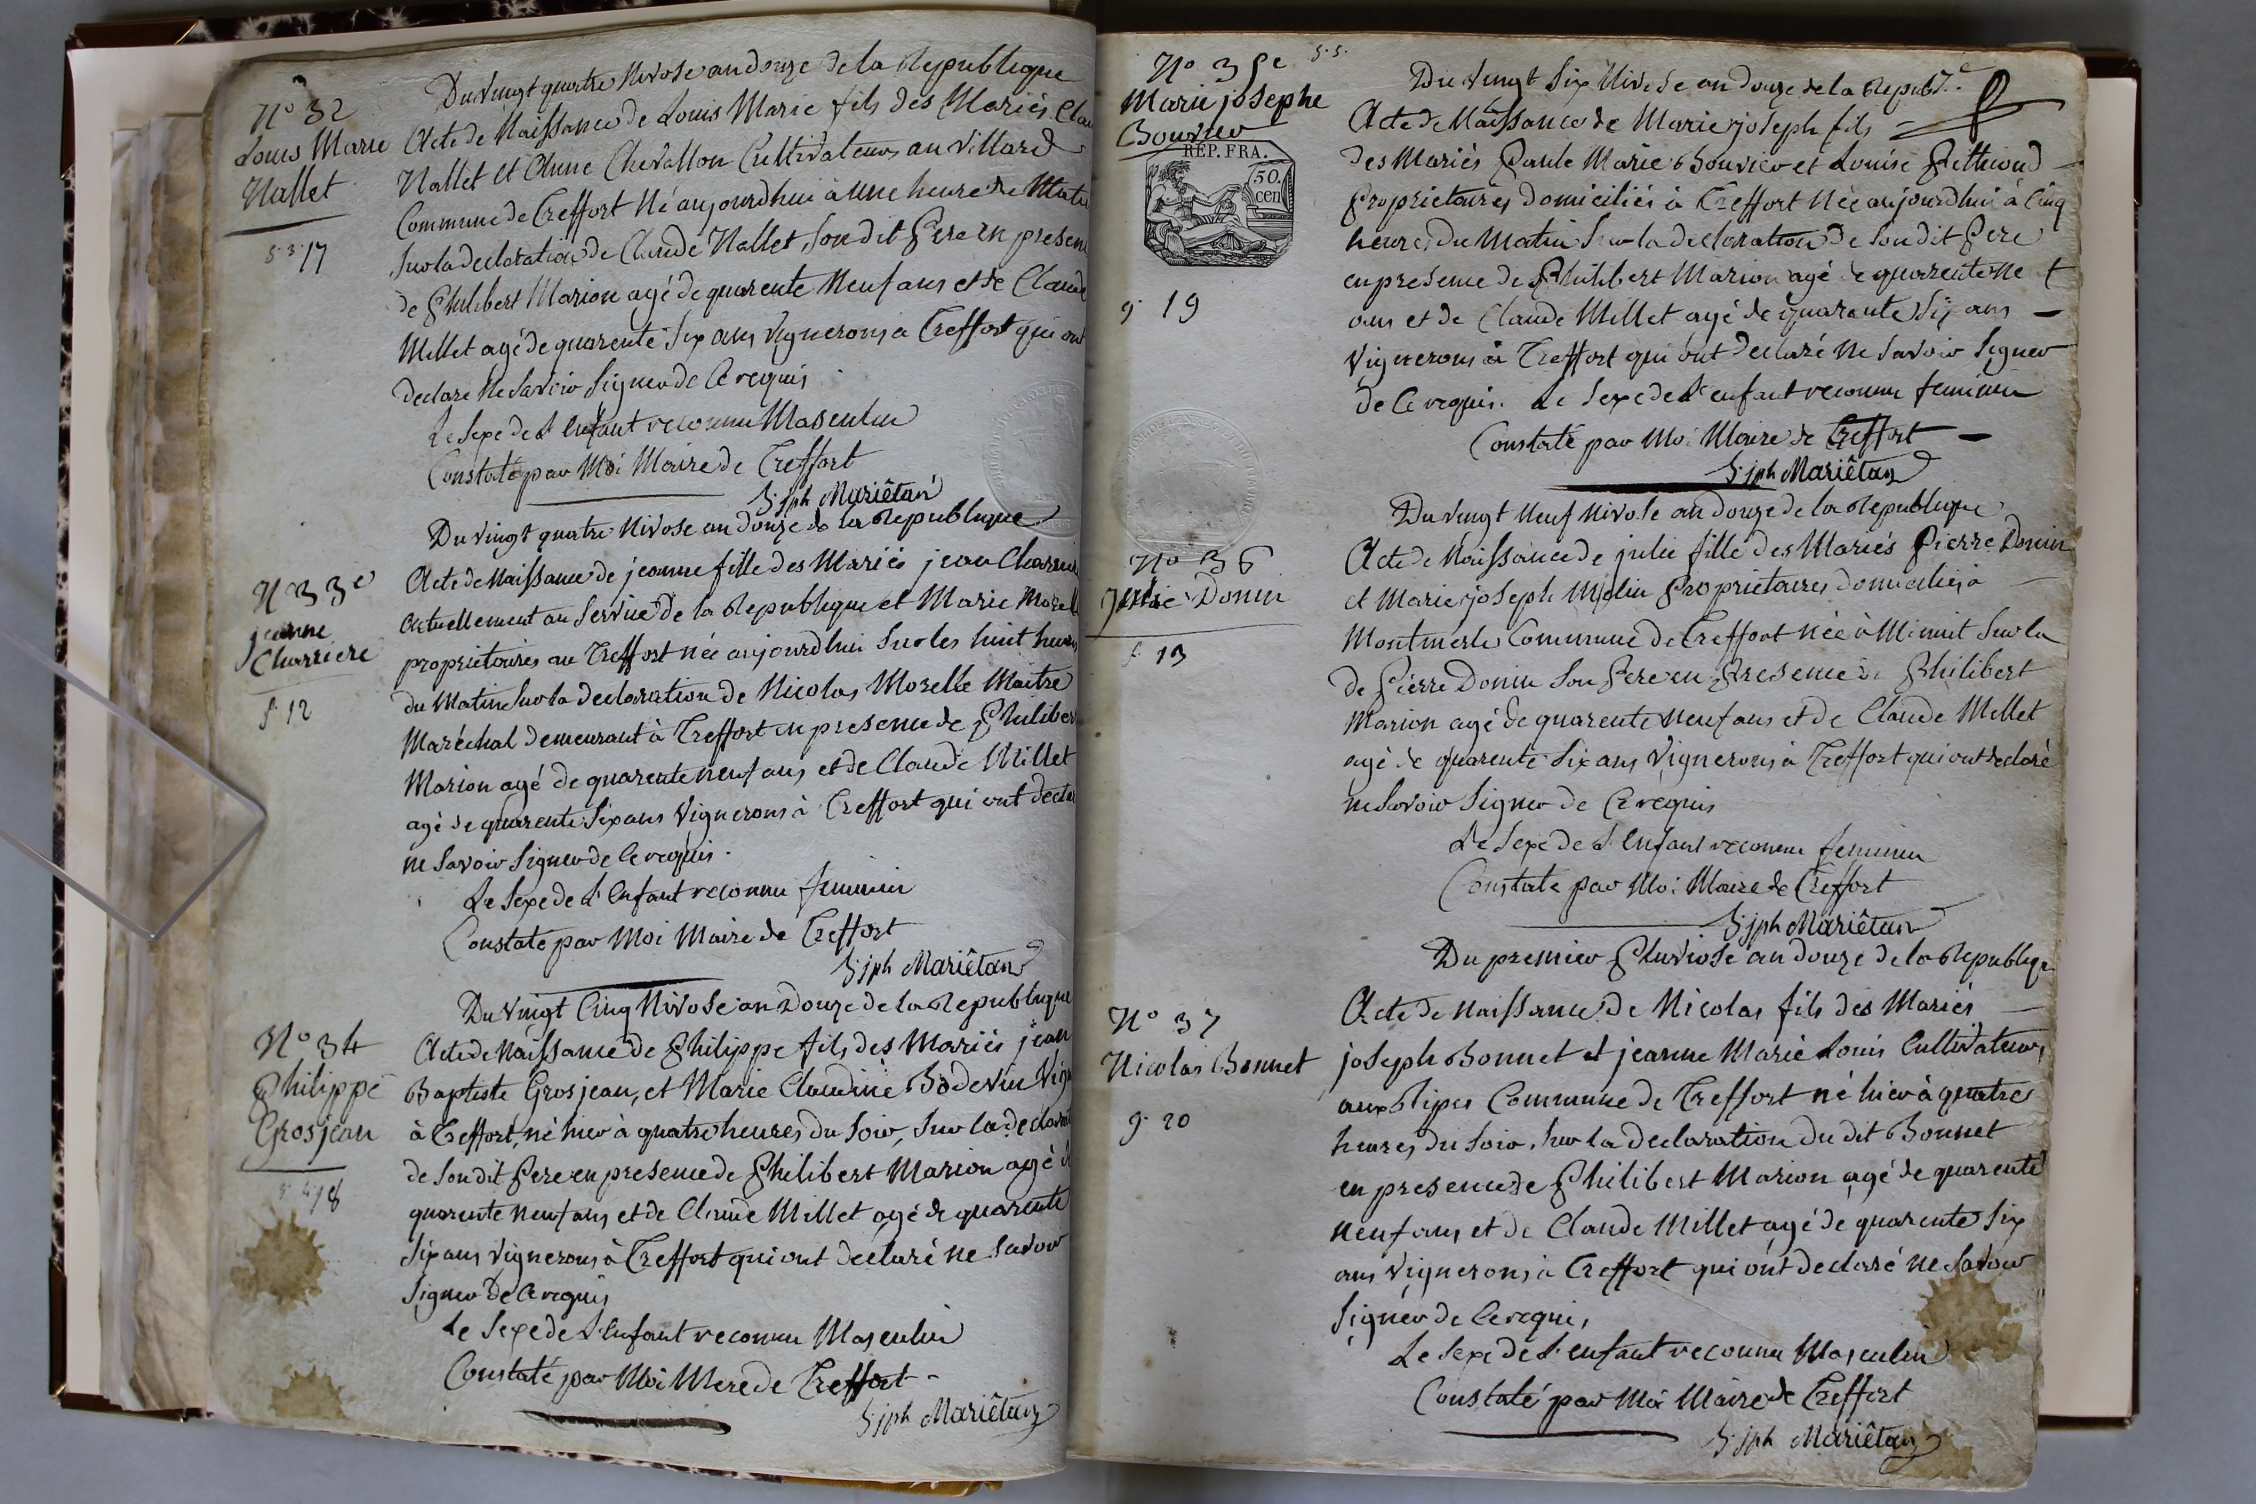 N° 32
Louis Marie
Nallet
g. 17
Du vingt quatre Nivose an douze de la Republique
Acte de Naissance de Louis Marie fils des Mariés
Nallet et Anne Chevallon Cultivateurs au Villard
Commune de Treffort Né aujourdhui à une heure du
Sur la declaration de Claude Nallet, Son dit Pere en
de Philibert Marion agé de quarente Neuf ans et de
Millet agé de quarente Six ans Vignerons à Treffort qui
declare Ne Savoir Signer de Ce requis
Le Sexe de L'enfant reconnu Masculin
Constaté par Moi Maire de Treffort
S. jph Mariêtan
N° 33e
jeanne
Charriere
f. 12
Du vingt quatre Nivose an douze de la Republique
Acte de Naissance de jeanne fille des Mariés jean
Actuellement au Service de la Republique et Marie
proprietaires au Treffort née aujourdhui Sur les huit
du Matin Sur la declaration de Nicolas Morelle Maitre
Maréchal demeurant à Treffort en presence de
Marion agé de quarente neuf ans, et de Claude Millet
agé de quarente Six ans Vignerons à Treffort qui ont
ne Savoir Signer de Ce requis.
Le Sexe de L'enfant reconnu feminin
Constate par Moi Maire de Treffort
S. jph Mariêtan
N° 34
Philippe
Grosjean
18
Du Vingt Cinq Nivose an Douze de la Republique
Acte de Naissance de Philippe fils des Mariés jean
Baptiste Grosjean, et Marie Claudine Bodevin
à Treffort, né hier à quatre heures du Soir, Sur la
de Son dit Pere en presence de Philibert Marion agé
quarente neuf ans et de Claude Millet agé de quarente
Six ans Vignerons à Treffort qui ont declaré ne Savoir
Signer de Ce requis
Le Sexe de L'enfant reconnu Masculin
Constaté par Moi Mere de Treffort
S. jph Mariêtan
N° 35e
Marie josephe
Bouvier
REP. FRA.
50.
cen
g. 19
Du Vingt Six Nivose an Douze de la
Acte de Naissance de Marie joseph fils
des Mariés Paule Marie Bouvier et Louise
Proprietaires domiciliés à Treffort Née aujourdhui à Cinq
heures du Matin Sur la declaration de Son dit Pere
en presence de Philibert Marion agé de quarente
ans et de Claude Millet agé de quarante Six ans
Vignerons à Treffort qui ont declaré Ne Savoir Signer
de Ce requis. Le Sexe de L'enfant reconnu feminin
Constaté par Moi Maire de Treffort
S. jph Mariêtan
N° 36
Julie Donin
f. 13
Du vingt Neuf Nivose an douze de la Republique
Acte de Naissance de julie fille des Mariés Pierre Donin
et Marie joseph Melin Proprietaires domiciliés à
Montmerle Commune de Treffort née à Minuit Sur la
de Pierre Donin Son Pere en Presence de Philibert
Marion agé de quarente Neuf ans et de Claude Millet
agé de quarente Six ans Vignerons à Treffort qui ont declaré
ne Savoir Signer de Ce requis
Le Sexe de L'enfant reconnu feminin
Constate par Moi Maire de Treffort
S. jph Mariêtan
N° 37
Nicolas Bonnet
g. 20
Du premier Pluviose an douze de la Republique
Acte de Naissance de Nicolas fils des Mariés
joseph Bonnet et jeanne Marie Louis Cultivateurs
aux Commune de Treffort né hier à quatre
heures du Soir, Sur la declaration du dit Bonnet
en presence de Philibert Marion agé de quarente
Neuf ans, et de Claude Millet agé de quarente Six
ans Vignerons à Treffort qui ont declaré ne Savoir
Signer de Ce requis,
Le Sexe de L'enfant reconnu Masculin
Constaté par Moi Maire de Treffort
S. jph Mariêtan